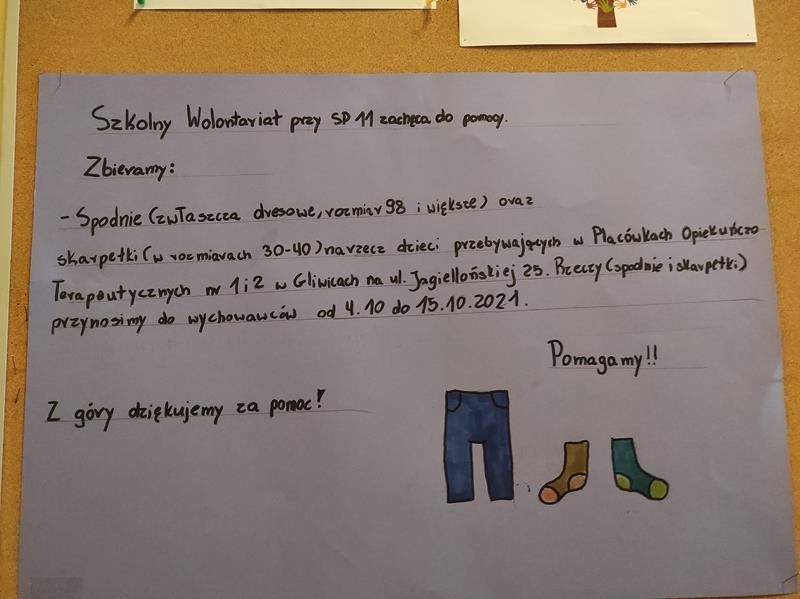 Szkolny Wolontariat przy SP 11 zachęca do pomocy.
Zbieramy:
- Spodnie (zwłaszcza dresowe, rozmiar 98 i większe) oraz
skarpetki (w rozmiarach 30-40) na rzecz dzieci przebywających w Placówkach Opiekuńczo
Terapeutycznych nr 1 i 2 w Gliwicach na ul. Jagiellońskiej 25. Rzeczy (spodnie i skarpetki)
przynosimy do wychowawców od 4.10 do 15.10.2021.
Pomagamy!!
Z góry dziękujemy za pomoc!